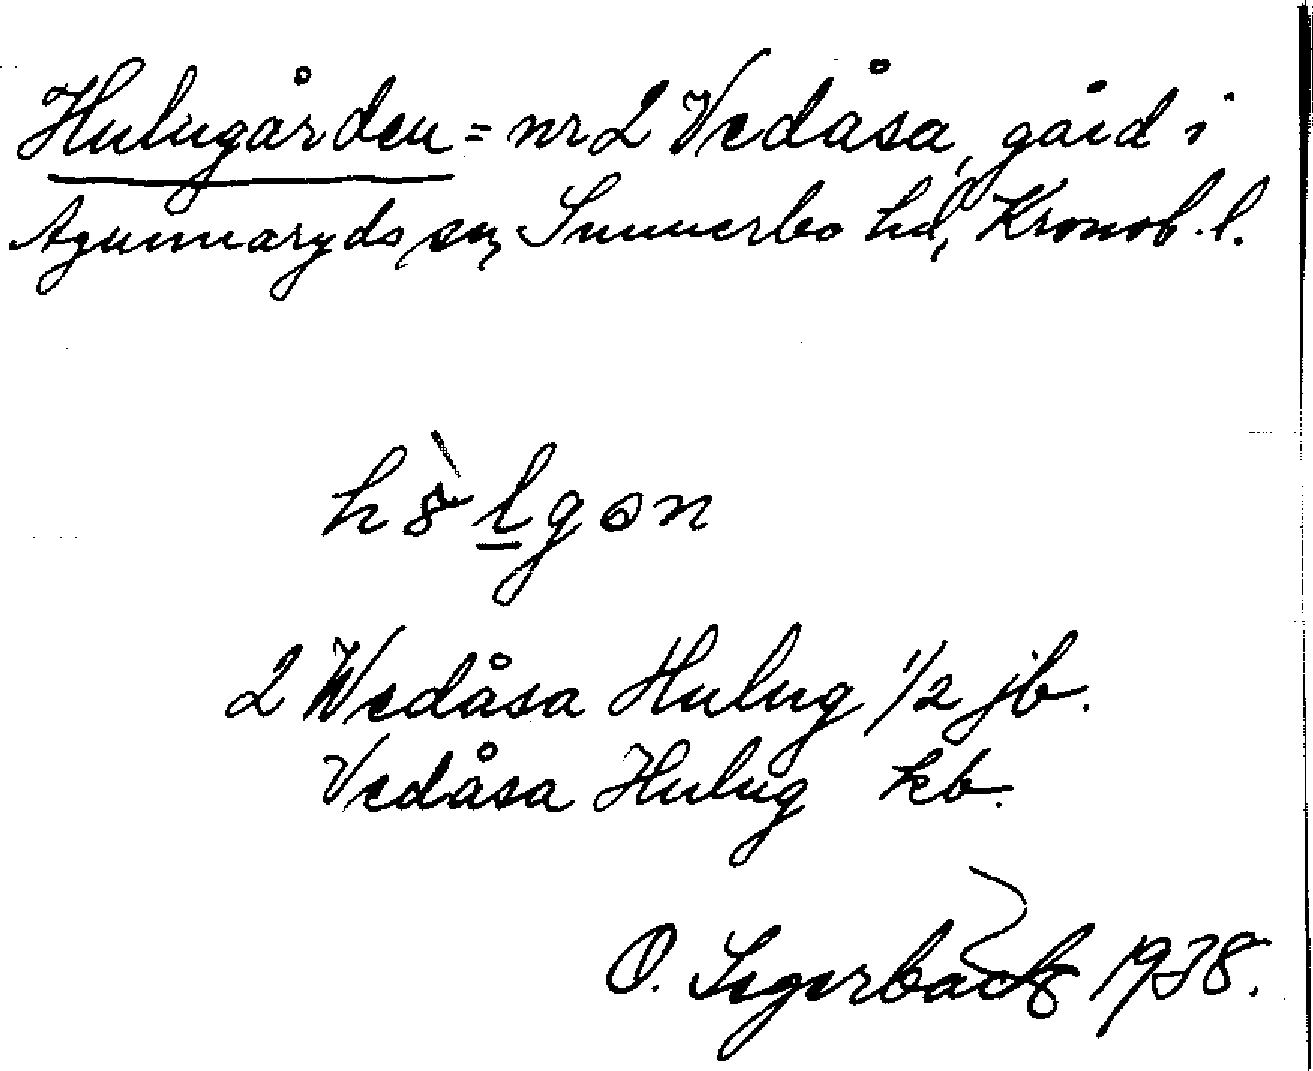 Hulugården = nr 2 Vedåsa, gård i
Agunnaryds sn, Sunnerbo hd, Kronob. l.
2 Wedåsa Hulug 1/2 jb.
Vedåsa Hulug kb.
O. Segerbäck 1938.